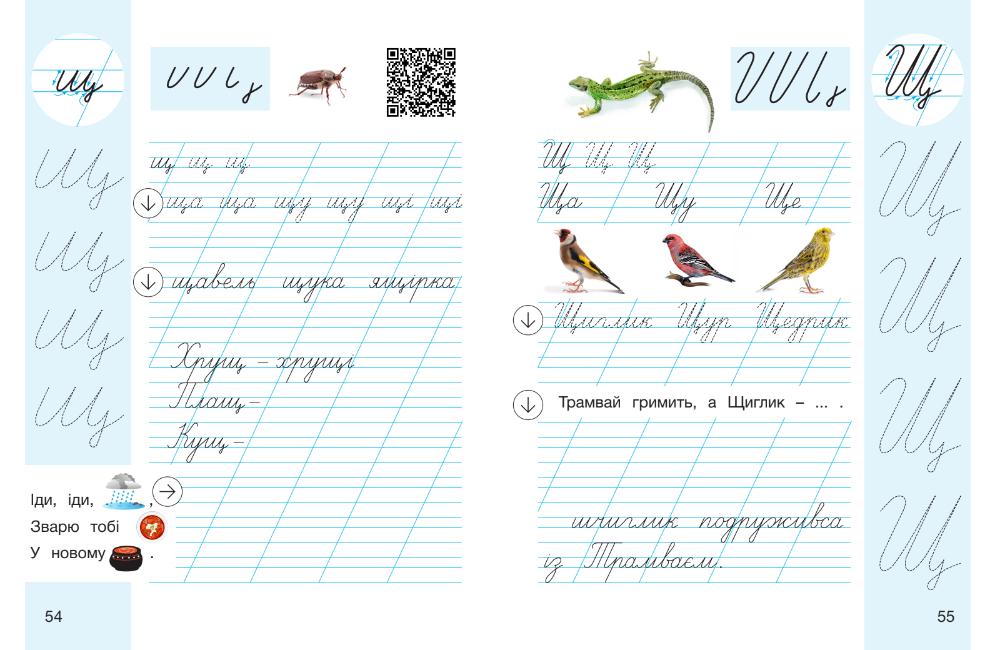 щ
щ щ щ
ща ща щу щу щі щі
щавель щука ящірка
Хрущ – хрущі
Плащ –
Кущ –
Іди, іди, ,
Зварю тобі
У новому .
54
Щ
Щ Щ Щ
Ща Щу Ще
Щиглик Щур Щедрик
Трамвай гримить, а Щиглик – ... .
із Трамваєм.
55
Щ
Щ
Щ
Щ
Щ
Щ
Щ
Щ